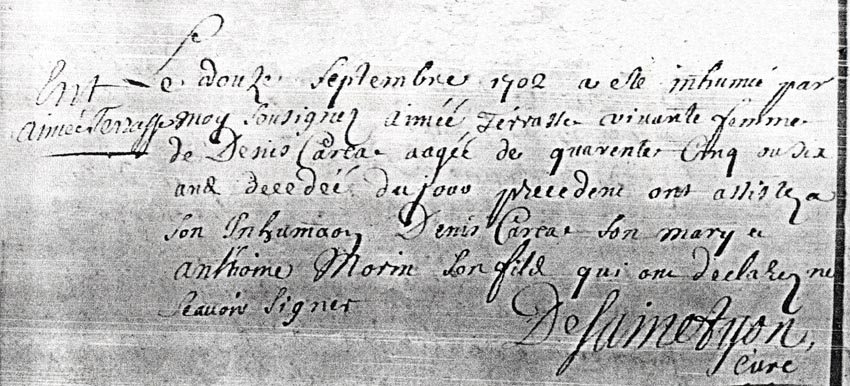 Ent
Aimée Terrasse
Le douze Septembre 1702 a esté inhumée par
moy Sousignez aimée Terrasse vivante femme
de Denis Carca aagée de quarente Cinq ou six
ans decedée du jour precedent ont assistez a
son Inhumaon Denis Carca son mary et
anthoine Morin son fils qui ont declarez ne
scavoir signer
Desainctyon,
Curé